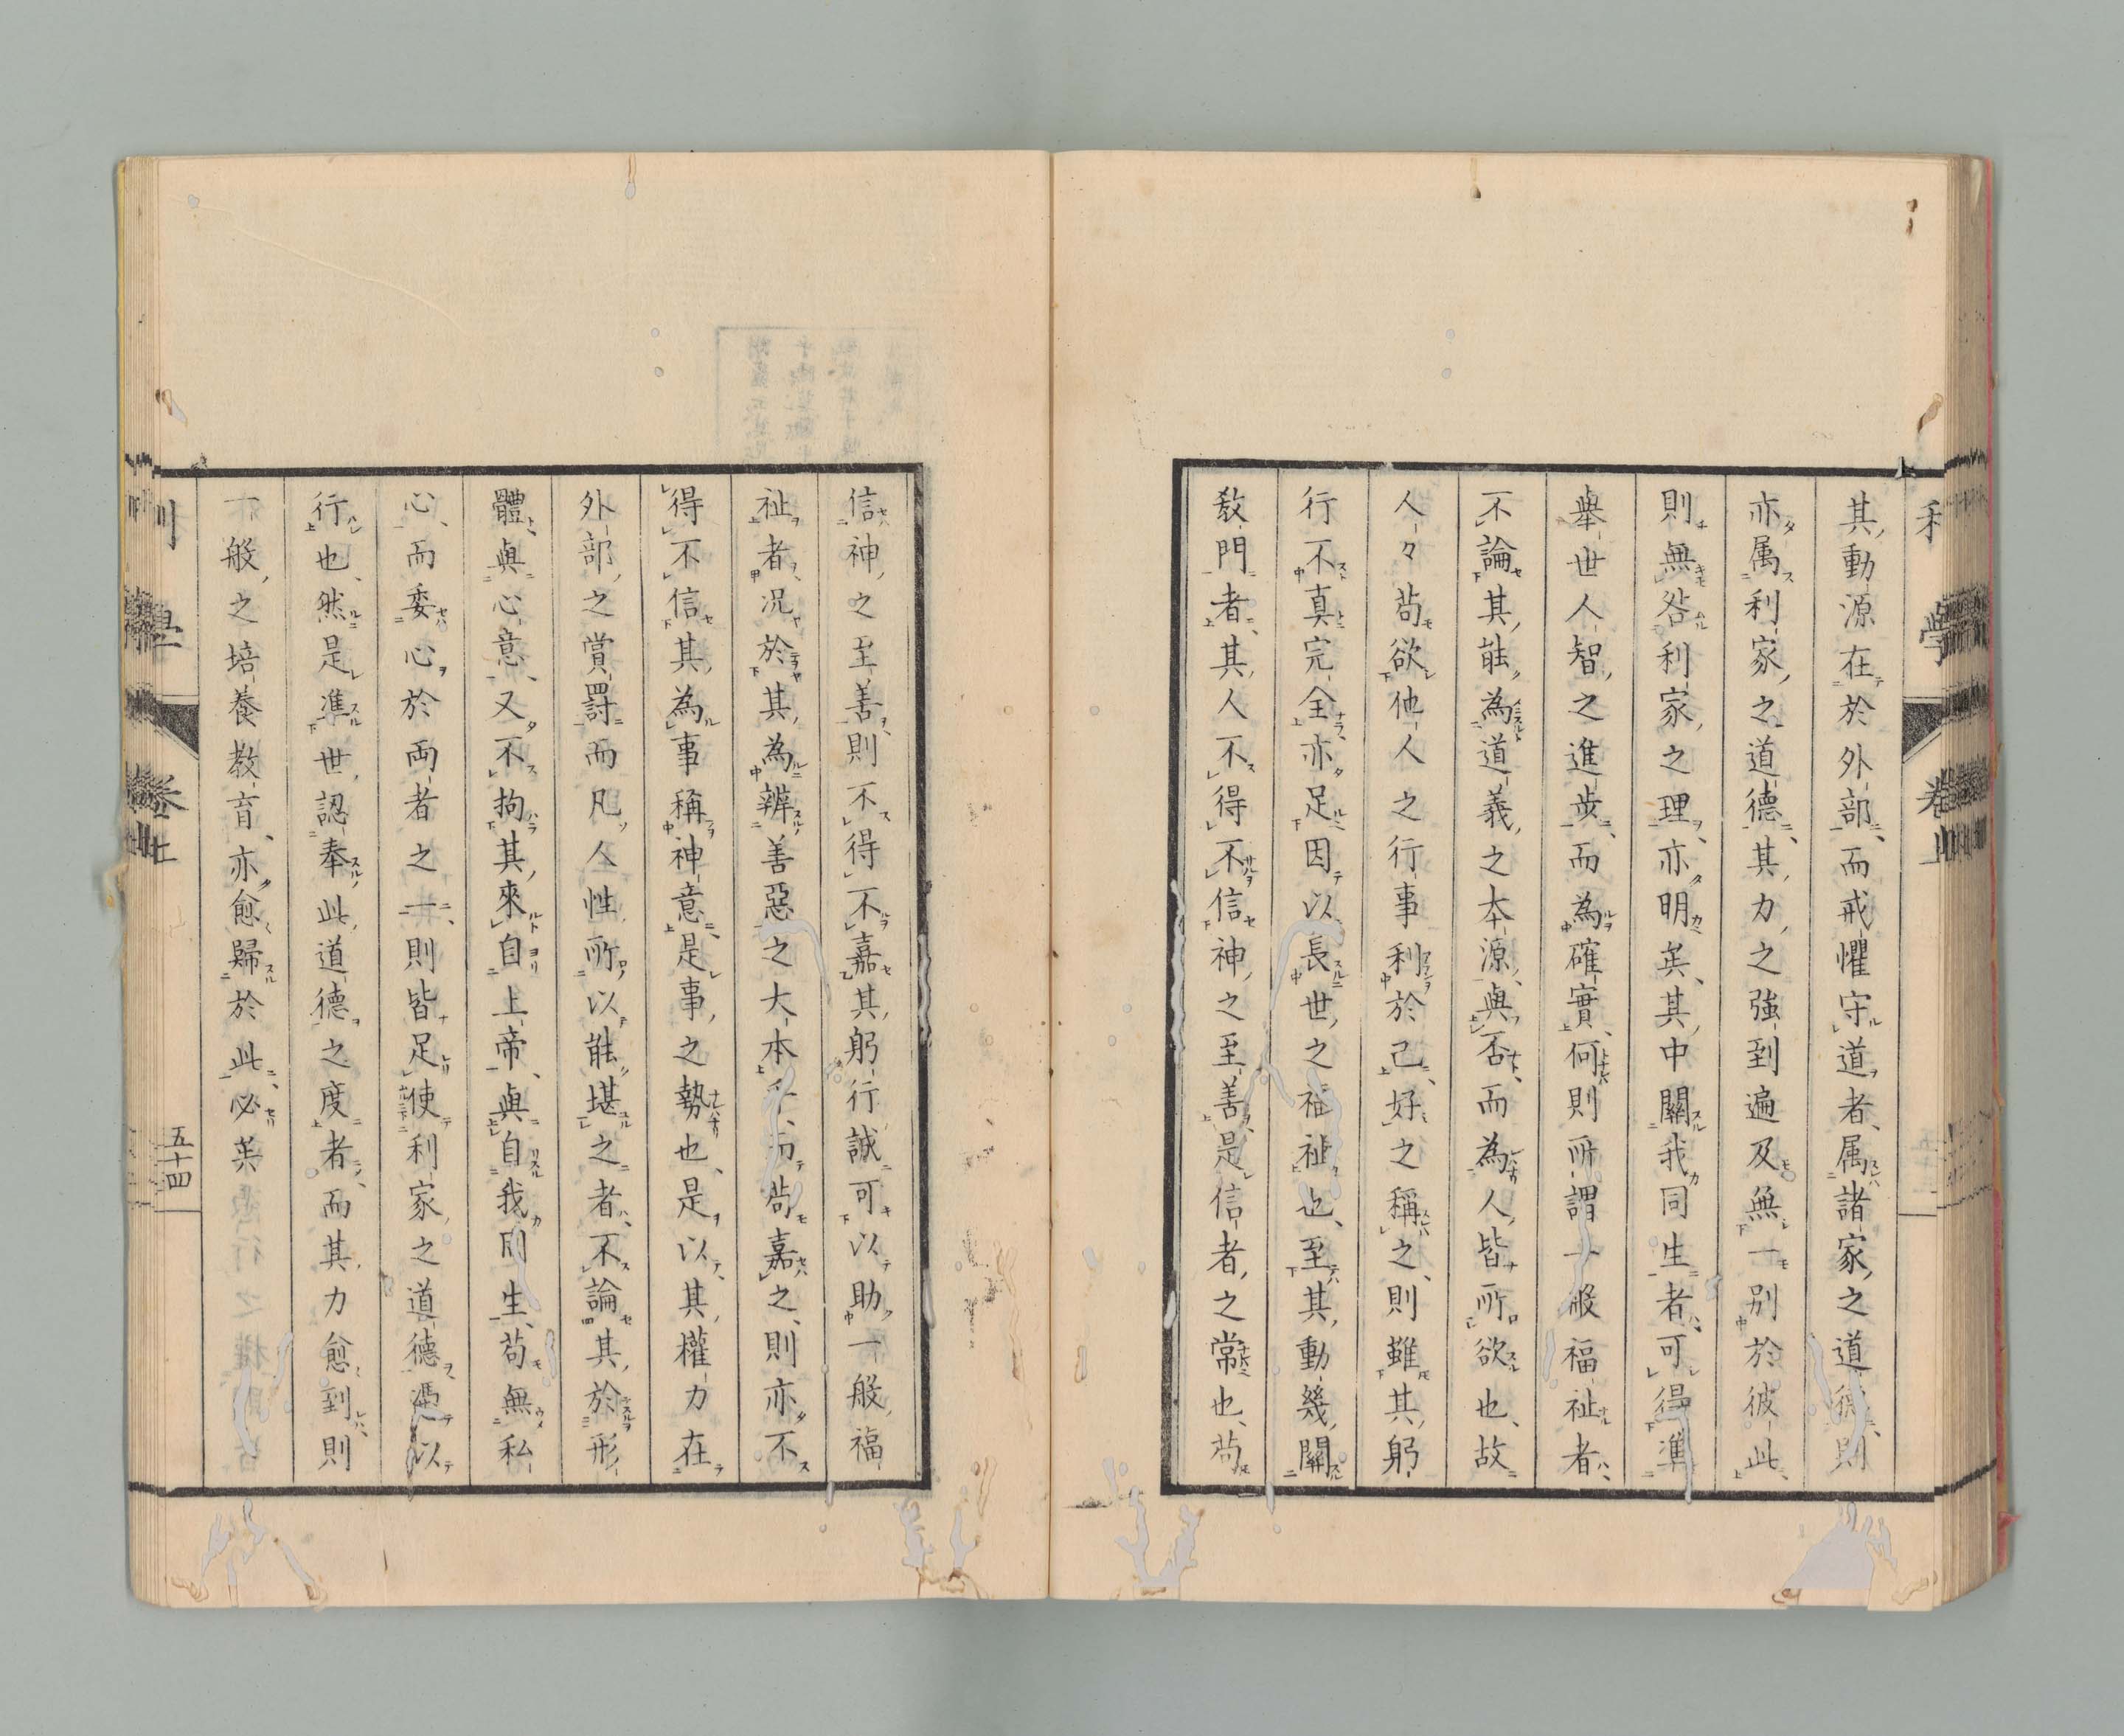 其動源在於外部而戒懼守道者属諸家之道德則
亦属利家之道德其力之強到遍及無一別於彼此
則無咎利家之理亦明矣其中關我同生者可得準
舉世人智之進步而為確實何則所謂一般福祉者
不論其能為道義之大本源與否而為人皆所欲也故
人々苟欲他人之行事利於己好之稱之則雖其躬
行不真完全亦足因以長世之福祉也至其動幾關
教門者其人不得不信神之至善是信者之常也苟
信神之至善則不得不嘉其躬行誠可以助一般福
祉者況於其為辨善惡之大本乎而苟嘉之則亦不
得不信其為事稱神意是事之勢也是以其權力在
外部之賞罰而凡人性所以能堪之者不論其於形
體與心意又不拘其來自上帝與自我同生苟無私
心而委心於両者之一則皆足使利家之道德憑以
行也然是準世認奉此道德之度者而其力愈到則
一般之培養教育亦愈歸於此必矣
五十四